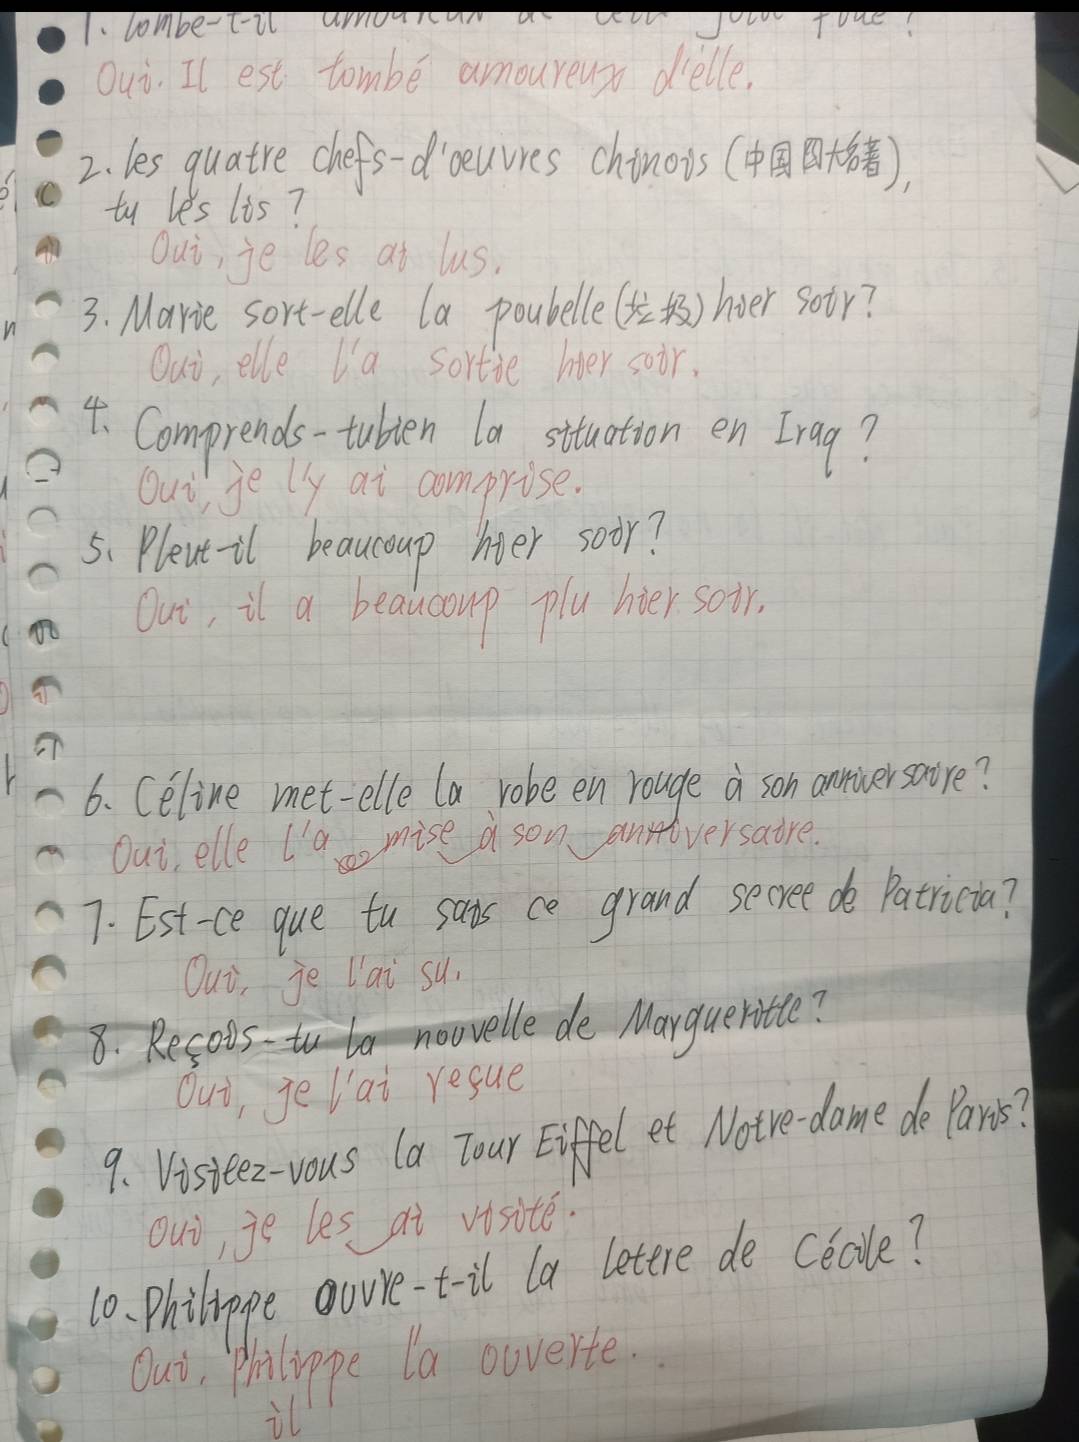 1. Tombe-t-il amoureux de cette jolie fille?
Oui. Il est tombé amoureux d'elle.
2. Les quatre chefs-d'œuvres chinois (中国四大名著),
tu les lis?
Oui, je les ai lus.
3. Marie sort-elle la poubelle (垃圾) hier soir?
Oui, elle l'a sortie hier soir.
4. Comprends-tubien la situation en Iraq?
Oui, je l'y ai comprise.
5. Pleut-il beaucoup hier soir?
Oui, il a beaucoup plu hier soir.
6. Céline met-elle la robe en rouge à son anniversaire?
Oui, elle l'a mise à son anniversaire.
7. Est-ce que tu sais ce grand secret de Patricia?
Oui, je l'ai su.
8. Reçois-tu la nouvelle de Margueritte?
Oui, je l'ai reçue
9. Visitez-vous la Tour Eiffel et Notre-dame de Paris?
Oui, je les ai visité.
10. Philippe ouvre-t-il la lettre de Cécile?
Oui, Philippe l'a ouverte.
il